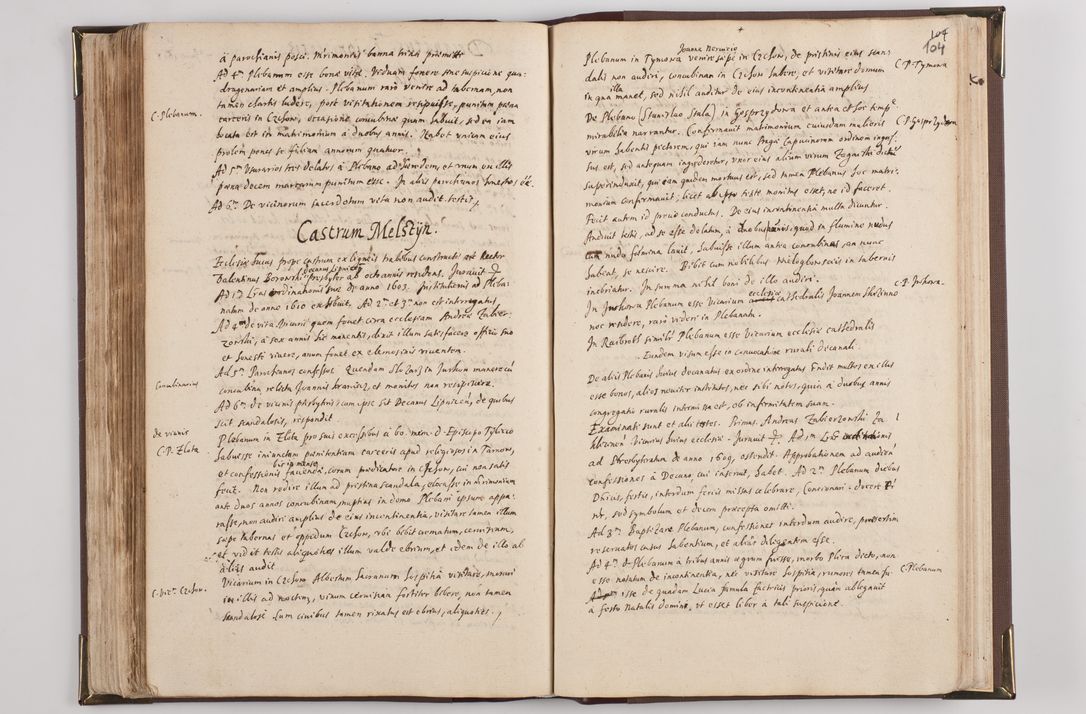 à parochianis posci. Matrimonia banna trina praemitti
Ad 4m Plebanum esse bonae vitae. Viduam fovere sine suspicione qua-
dragenariam et amplius. Plebanum raro venire ad tabernam, non
tamen chartis ludere, post visitationem resipuisse, punitum poena
C. Plebanum.
carceris in Czchow, occasione concubinae quam habuit, sed ea iam
locata est in matrimonium à duobus annis. Habet unicam eius
prolem penes se filiam annorum quatuor.
Ad 5m Usurarios tres delatos à Plebano ad
poena decem marcarum punitum esse. In aliis parochianos honestos &c.
Ad 6m De vicinorum sacerdotum vita non audit testis
Castrum Melsztÿn.
Ecclesiae huius prope castrum ex ligneis trabibus constructae est Rector
decanus Lipnicen
Valentinus Borowski Presbyter ab octo annis residens. Juravit
Ad 1m Lras ordinationis suae de anno 1603. Institutionis ad Pleba-
natum de anno 1610 exhibuit. Ad 2m et 3m non est interrogatus
Ad 4m de vita Vicarii quem fovet circa ecclesiam Andreae Zubier-
zowski, à sex annis hic manentis, dixit illum satisfacere officio suo
et honeste vivere, anum fovet ex elemosinis viventem.
Ad 5m Parochianos confessos. Quendam in Jurkow manere cum
Concubinarius
concubina relicta Joannis et monitus non resipiscere.
Ad 6m de vicinis presbyteris cum ipse sit Decanus Lipnicen, de quibus
scit scandalosis, respondit
de vicinis
Plebanum in Zlota pro suis excessibus à bo. mem. D. Episcopo Tylicio
C. P. Zlota.
habuisse iniunctam poenitentiam carceris apud religiosos in Tarnow,
hic in mense
et confessionis faciendae, coram praedicatore in Czchow, cui non satis
fecit. Non redire illum ad pristina scandala, elocasse in matrimonium
ante duos annos concubinam, nuptias in domo Plebani ipsum appa-
rasse, non audiri amplius de eius incontinentia, visitare tamen illum
saepe tabernas et oppidum Czchow, ubi bibit crematum, cervisiam,
et vidit testis aliquoties illum valde ebrium, et idem de illo ab
aliis audit
C. Vic. Czchow.
Vicarium in Czchow Albertum Sacranum hospitia visitare, morari
in illis ad noctem, vinum cervisiam fortiter bibere, non tamen
scandalose. Cum civibus tamen rixatus est ebrius, aliquoties.
104
104
Joanne
Plebanum in Tymowa venire saepe in Czchow, de pristinis eius scan-
C. P. Tymowa
dalis non audiri, concubinam in Czchow habere, et visitare domum
illa
in qua manet, sed nihil auditur de eius incontinentia amplius
De Plebano (Stanislao Stala) in Gosprzydowa et antea et hoc tempore
C. P. Gosprzydowa
mirabilia narrantur. Confirmavit matrimonium cuiusdam mulieris
virum habentis pictorem, qui iam nunc Pragae Capucinorum ordinem ingres-
sus est, sed antequam ingrederetur, uxor eius alium virum dictum
superinduxit, qui iam quidem mortuus est, sed tamen Plebanus hoc matri-
monium confirmavit, licet ab ipso teste monitus esset, ne id faceret.
Fecit autem id precio conductus. De eius incontinentia multa dicuntur.
Audivit testis, ad se esse delatum, à duobus, quod in flumine nudus
cum nuda foemina lavit. Habuisse illum antea concubinas, an nunc
habeat, se nescire. Bibit cum nobilibus Wieloglowsciis in tabernis
inebriatur. In summa nihil boni de illo audiri.
ecclesiae
C. P. Jurkova.
In Jurkow Plebanum esse Vicarium cathedralis Joannem
nec residere, raro videri in Plebanatu.
In Raibrot similiter Plebanum esse Vicarium ecclesiae cathedralis
Eundem visum esse in convocatione rurali decanali.
De aliis Plebanis huius decanatus ex ordine interrogatus Credit multos ex illis
esse bonos, alios noviter institutos, nec sibi notos, quia à duobus annis
congregatio ruralis intermissa est, ob infirmitatem suam.
Examinati sunt et alii testes. Primus. Andreas Zubierzowski Za-
kliczinen Vicarius huius ecclesiae. Juravit. Ad 1m Lras
ad Presbyteratum de anno 1609, ostendit. Approbationem ad audien-
confessiones à Decano, cui inservit, habet. Ad 2m Plebanum diebus
Dnicis, festis, interdum feriis missas celebrare, Concionari. docere
nr, sed symbolum et decem praecepta omitti.
Ad 3m Baptizare Plebanum, confessiones interdum audire, praesertim
reservatos casus habentium, et alias diligentem esse.
Ad 4m d. Plebanum à tribus annis aegrum fuisse, morbo Plica dicto, non
C. Plebanum
esse notatum de incontinentia, nec visitare hospitia, rumores tamen fu-
isse de quadam Lucia famula factricis prioris, quam ablegavit
à festo Natalis Domini, ut esset liber à tali suspicione.